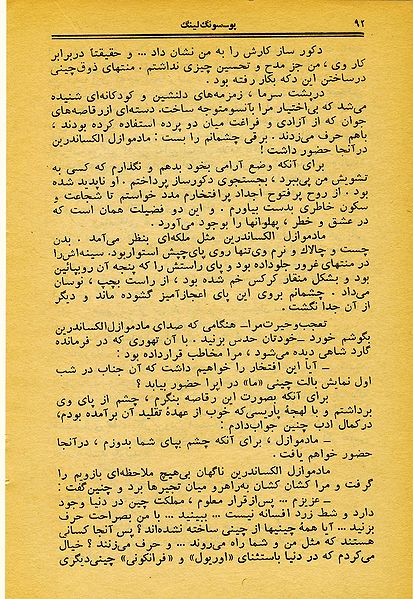 ۹۲
یوسسونگ‌لینگ
دکور ساز کارش را به من نشان داد ... و حقیقتاً دربرابر
کار وی ، من جز مدح و تحسین چیزی نداشتم . منتهای ذوق‌چینی
درساختن این دکه بکار رفته بود .
درپشت سرما ، زمزمه‌های دلنشین و کودکانه‌ای شنیده
می‌شد که بی‌اختیار مرا بانسومتوجه ساخت.دسته‌ای ازرقاصه‌های
جوان که از آزادی و فراغت میان دو پرده استفاده کرده بودند ،
باهم حرف می‌زدند . برقی چشمانم را بست : مادموازل الکساندرین
درآنجا حضور داشت !
برای آنکه وضع آرامی بخود بدهم و نگذارم که کسی به
تشویش من پی‌ببرد ، بجستجوی دکورساز پرداختم . او ناپدید شده
بود . از روح پرفتوح اجداد پرافتخارم مدد خواستم تا شجاعت و
سکون خاطری بدست بیاورم . و این دو فضیلت همان است که
در عشق و خطر ، پهلوانها را بوجود می‌آورد .
مادموازل الکساندرین مثل ملکه‌ای بنظر می‌آمد . بدن
چست و چالاک و نرم وی‌تنها روی پای‌چپش استواربود. سینه‌اش‌را
در منتهای غرور جلوداده بود و پای راستش را که پنجه آن روبپائین
بود و بشکل منقار کرکس خم شده بود ، از راست بچپ ، نوسان
می‌داد . چشمانم بروی این پای اعجازآمیز گشوده ماند و دیگر
از آن جدا نگشت .
تعجب‌وحیرت‌مرا– هنگامی که صدای مادموازل‌الکساندرین
بگوشم خورد –خودتان حدس بزنید . با آن تهوری که در فرمانده
گارد شاهی دیده می‌شود ، مرا مخاطب قرارداده بود :
– آیا این افتخار را خواهیم داشت که آن جناب در شب
اول نمایش بالت چینی «ما» در اپرا حضور بیابد ؟
برای آنکه بصورت این رقاصه بنگرم ، چشم از پای وی
برداشتم و با لهجهٔ پاریسی‌که خوب از عهدهٔ تقلید آن برآمده بودم،
درکمال ادب چنین جواب‌دادم :
– مادموازل ، برای آنکه چشم بپای شما بدوزم ، درآنجا
حضور خواهم یافت .
مادموازل الکساندرین ناگهان بی‌هیچ ملاحظه‌ای بازویم را
گرفت و مرا کشان کشان به‌راهرو میان تجیرها برد و چنین‌گفت :
– عزیزم ... پس‌ازقرار معلوم ، مملکت چین در دنیا وجود
دارد و شط زرد افسانه نیست ... ببینید ... با من بصراحت حرف
بزنید ... آیا همهٔ چینیها از چینی ساخته نشده‌اند ؟ پس آنجا کسانی
هستند که مثل من و شما راه می‌روند ... و حرف می‌زنند ؟ خیال
می‌کردم که در دنیا باستثنای «اوریول» و «فرانکونی» چینی‌دیگری